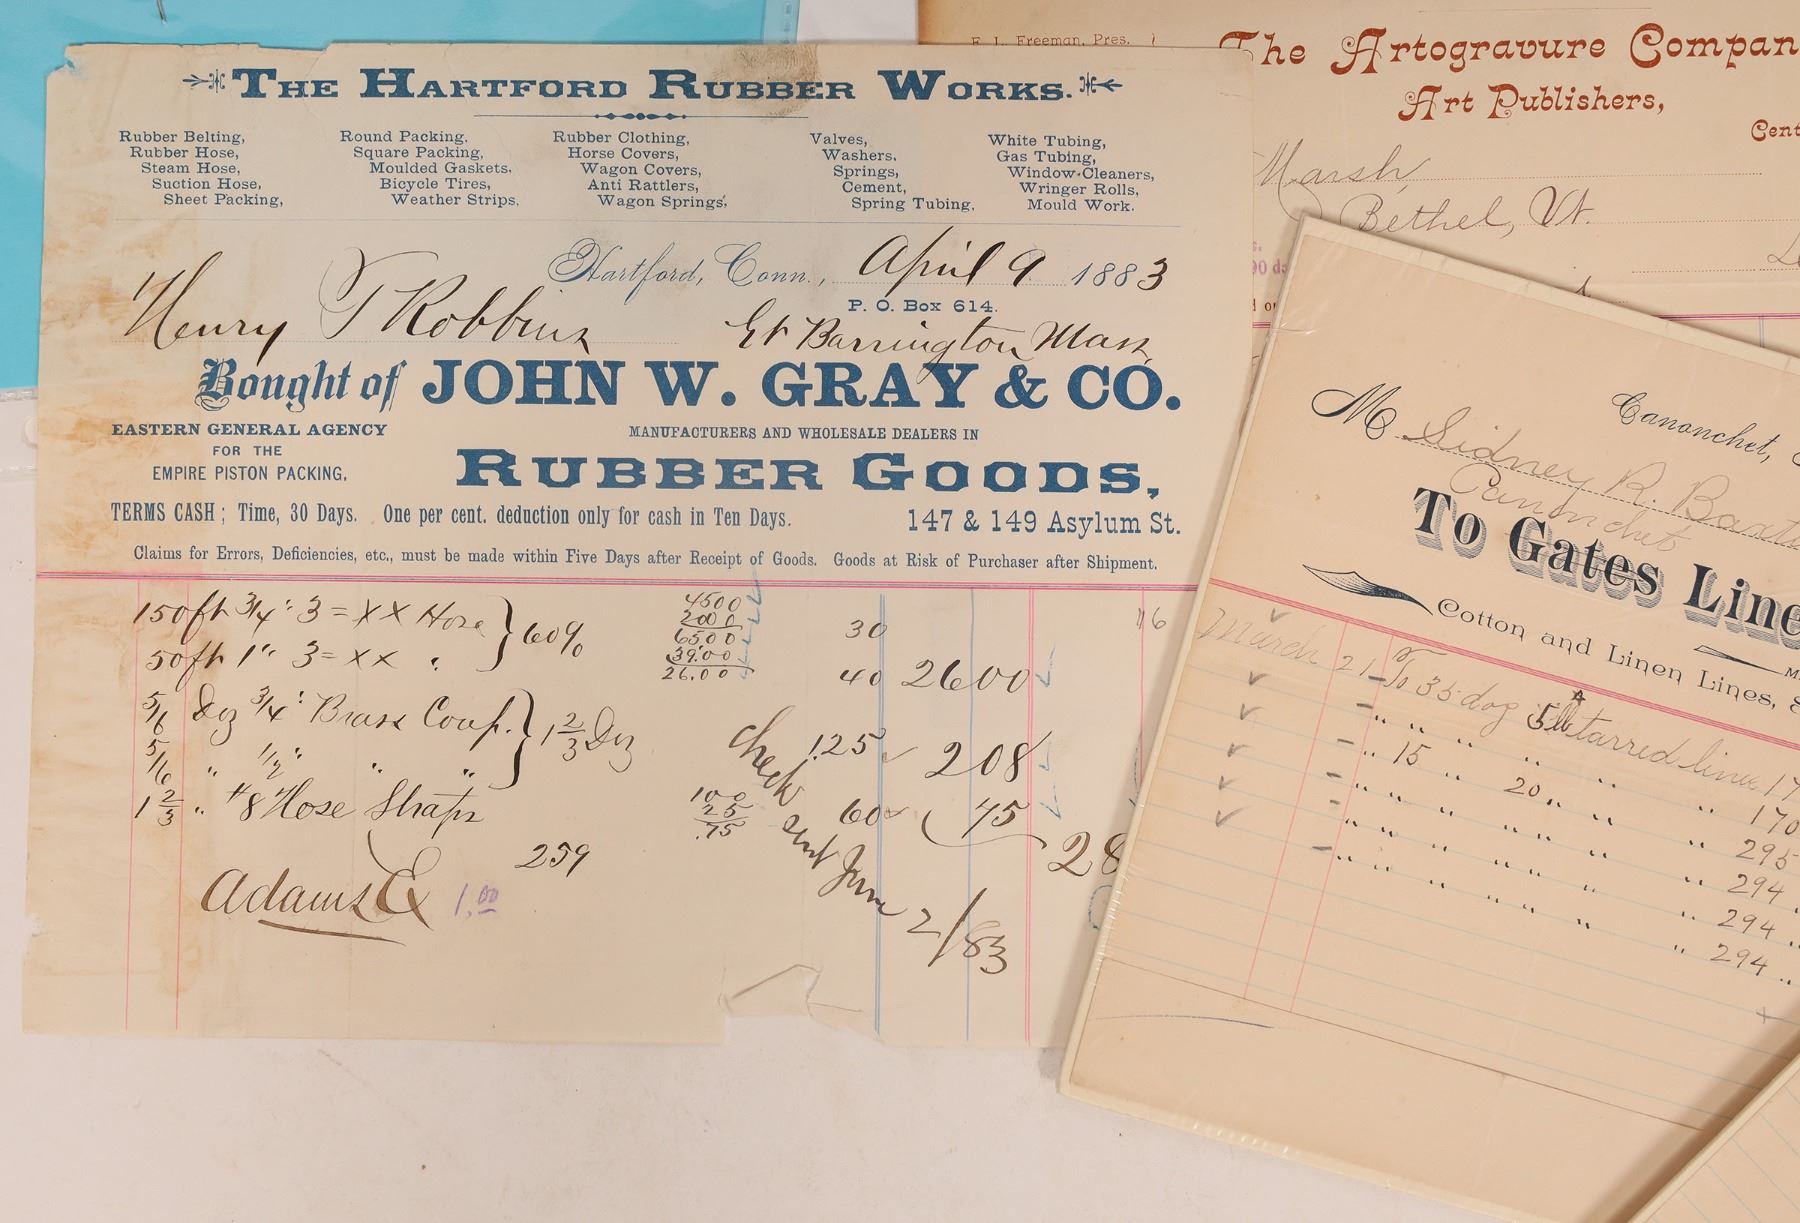 The Hartford Rubber Works.
Rubber Belting,
Rubber Hose,
Steam Hose,
Suction Hose,
Sheet Packing,
Round Packing,
Square Packing,
Moulded Gaskets,
Bicycle Tires,
Weather Strips,
Rubber Clothing,
Horse Covers,
Wagon Covers,
Anti Rattlers,
Wagon Springs,
Valves,
Washers,
Springs,
Cement,
Spring Tubing,
White Tubing,
Gas Tubing,
Window-Cleaners,
Wringer Rolls,
Mould Work.
Hartford, Conn., April 9 1883
P. O. Box 614.
Henry T Robbins Gt Barrington Mass,
Bought of JOHN W. GRAY & CO.
EASTERN GENERAL AGENCY
FOR THE
EMPIRE PISTON PACKING.
MANUFACTURERS AND WHOLESALE DEALERS IN
RUBBER GOODS,
TERMS CASH; Time, 30 Days. One per cent. deduction only for cash in Ten Days. 147 & 149 Asylum St.
Claims for Errors, Deficiencies, etc., must be made within Five Days after Receipt of Goods. Goods at Risk of Purchaser after Shipment.
150 ft 3/4" 3 = XX Hose } 60% 30
50 ft 1" 3 = XX " 40 2600
4500
2000
6500
39.00
26.00
5/6 Doz 3/4" Brass Coup. } 1 2/3 Doz 125 208
5/6 " 1/2" " "
1 2/3 " #8 Hose Straps 60 (45) 28
100
25
.75
259
Adams Ex 1.00
check sent June 2/83
F. L. Freeman, Pres.
The Artogravure Compan
Art Publishers,
Cent
Marsh,
Bethel, Vt.
Canonchet,
M Sidney R. Baxt
Canonchet
To Gates Line
Cotton and Linen Lines, &
March 21 To 35 doz 5 lb tarred line 17
" " " " " 170
" 15 " 20 " " 295
" " " " " 294
" " " " " 294
" " " " " 294